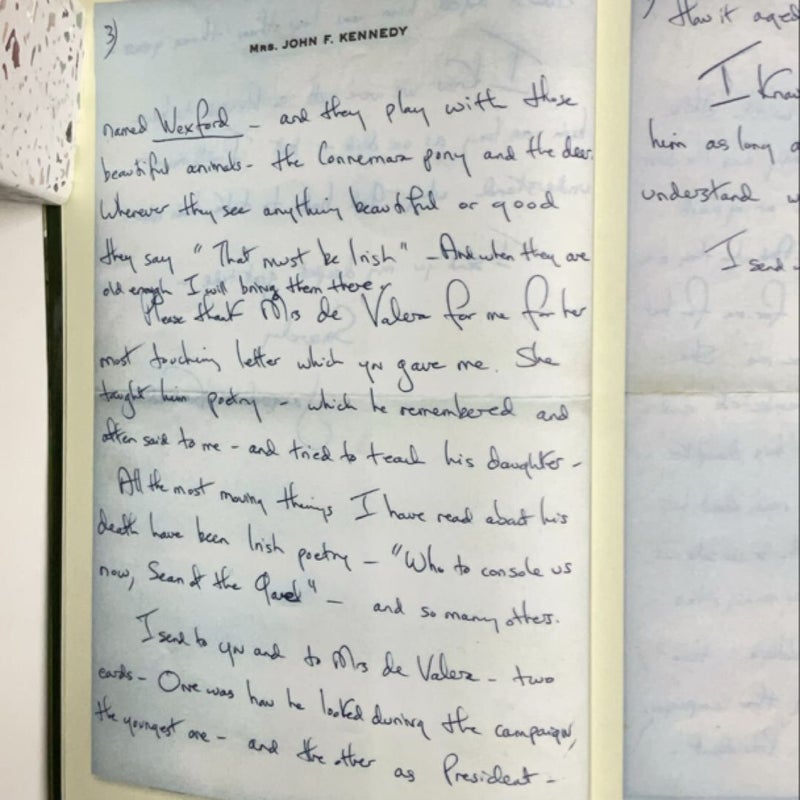 3)
MRS. JOHN F. KENNEDY
named Wexford - and they play with those
beautiful animals - the Connemara pony and the deer.
Wherever they see anything beautiful or good
they say "That must be Irish" - And when they are
old enough I will bring them there.
Please thank Mrs de Valera for me for her
most touching letter which you gave me. She
taught him poetry - which he remembered and
often said to me - and tried to teach his daughter -
All the most moving things I have read about his
death have been Irish poetry - "Who to console us
now, Sean of the" - and so many others.
I send to you and to Mrs de Valera - two
cards - One was how he looked during the campaign,
the youngest one - and the other as President -
How it aged
I know
him as long
understand
I send